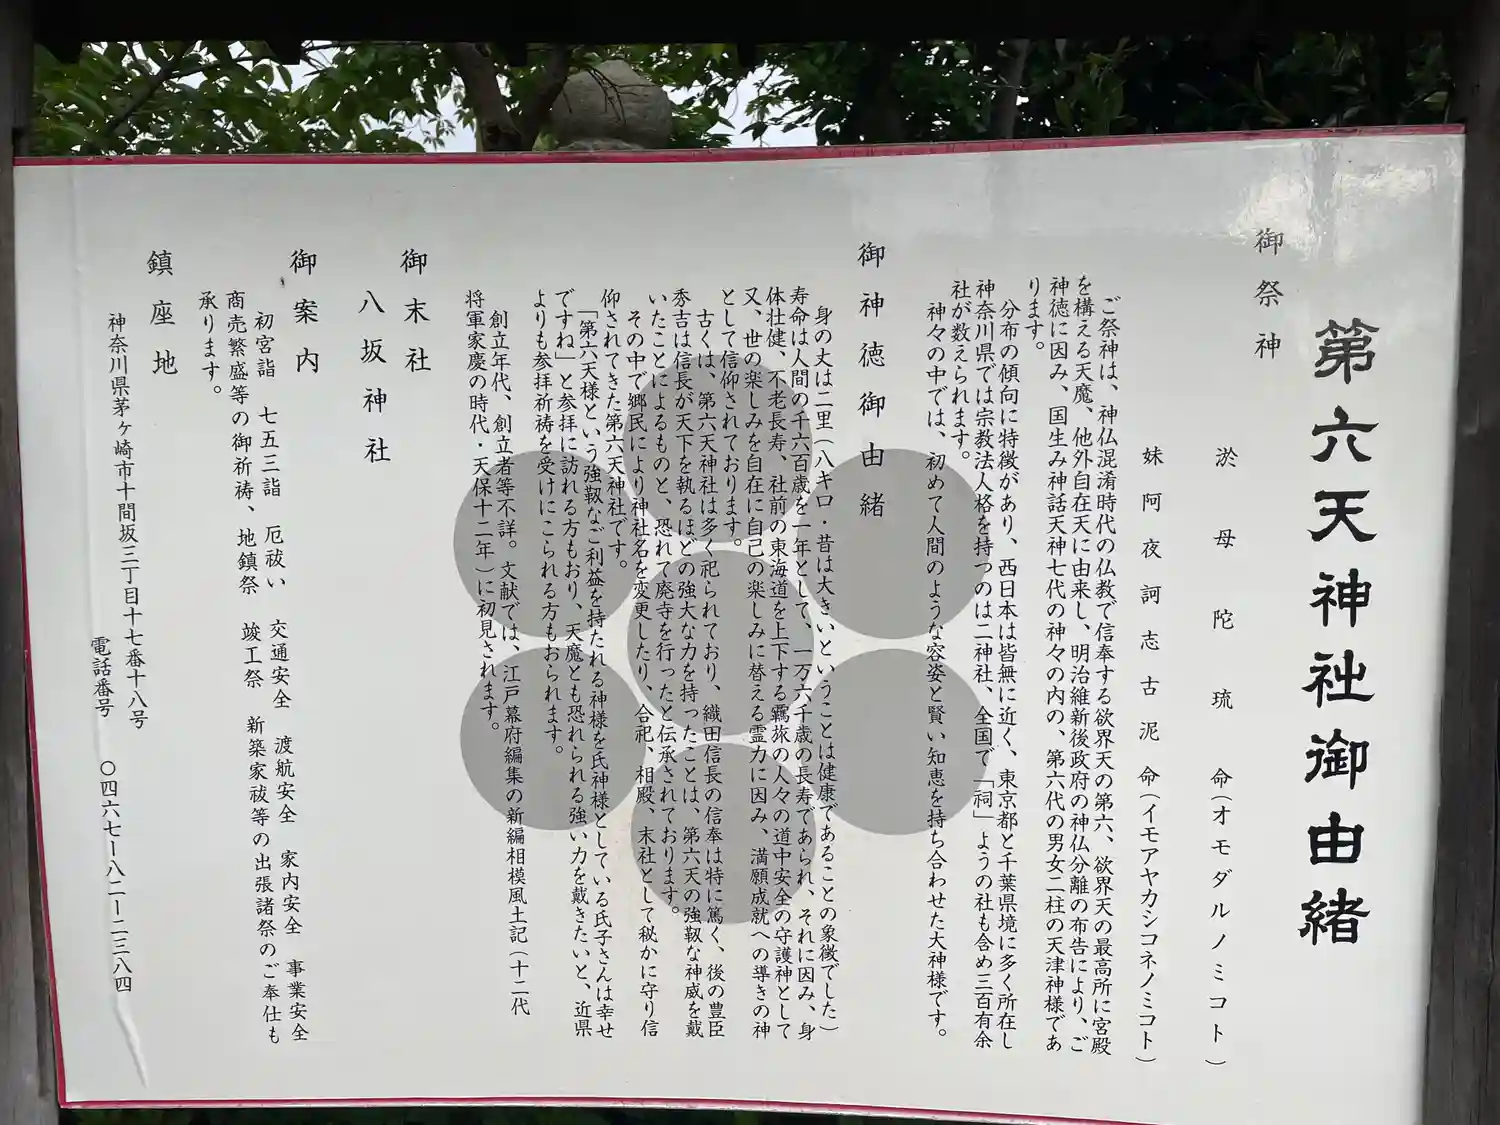 第六天神社御由緒
御祭神
淤母陀琉命(オモダルノミコト)
妹阿夜訶志古泥命(イモアヤカシコネノミコト)
ご祭神は、神仏混淆時代の仏教で信奉する欲界天の第六、欲界天の最高所に宮殿
を構える天魔、他外自在天に由来し、明治維新後政府の神仏分離の布告により、ご
神徳に因み、国生み神話天神七代の神々の内の、第六代の男女二柱の天津神様であ
ります。
分布の傾向に特徴があり、西日本は皆無に近く、東京都と千葉県境に多く所在し
神奈川県では宗教法人格を持つのは二神社、全国で「祠」ようの社も含め三百有余
社が数えられます。
神々の中では、初めて人間のような容姿と賢い知恵を持ち合わせた大神様です。
御神徳御由緒
身の丈は二里(八キロ・昔は大きいということは健康であることの象徴でした)
寿命は人間の千六百歳を一年として、一万六千歳の長寿であられ、それに因み、身
体壮健、不老長寿、社前の東海道を上下する羈旅の人々の道中安全の守護神として
又、世の楽しみを自在に自己の楽しみに替える霊力に因み、満願成就への導きの神
として信仰されております。
古くは、第六天神社は多く祀られており、織田信長の信奉は特に篤く、後の豊臣
秀吉は信長が天下を執るほどの強大な力を持ったことは、第六天の強靱な神威を戴
いたことによるものと、恐れて廃寺を行ったと伝承されております。
その中で郷民により神社名を変更したり、合祀、相殿、末社として秘かに守り信
仰されてきた第六天神社です。
「第六天様という強靱なご利益を持たれる神様を氏神様としている氏子さんは幸せ
ですね」と参拝に訪れる方もおり、天魔とも恐れられる強い力を戴きたいと、近県
よりも参拝祈祷を受けにこられる方もおられます。
創立年代、創立者等不詳。文献では、江戸幕府編集の新編相模風土記(十二代
将軍家慶の時代・天保十二年)に初見されます。
御末社
八坂神社
御案内
初宮詣 七五三詣 厄祓い 交通安全 渡航安全 家内安全 事業安全
商売繁盛等の御祈祷、地鎮祭 竣工祭 新築家祓等の出張諸祭のご奉仕も
承ります。
鎮座地
神奈川県茅ヶ崎市十間坂三丁目十七番十八号
電話番号 〇四六七ー八二ー二三八四